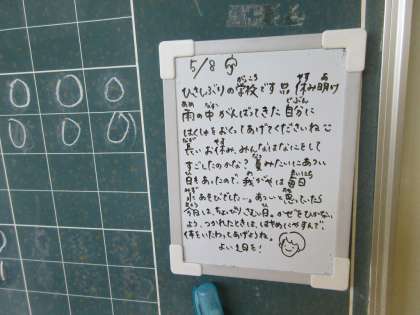 5/8
ひさしぶりの学校です 休み明け
雨の中がんばってきた自分に
はくしゅをおくってあげてくださいね
長いお休み、みんなはなにをして
すごしたのかな？夏みたいにあつい
日もあったので、我が家は毎日
水あそびでした…。あついと思っていたら
今日は、ちょっぴりさむい日。かぜをひかない
よう、つかれたときは、はやめにやすんで、
体をいたわってあげようね。
よい1日を！